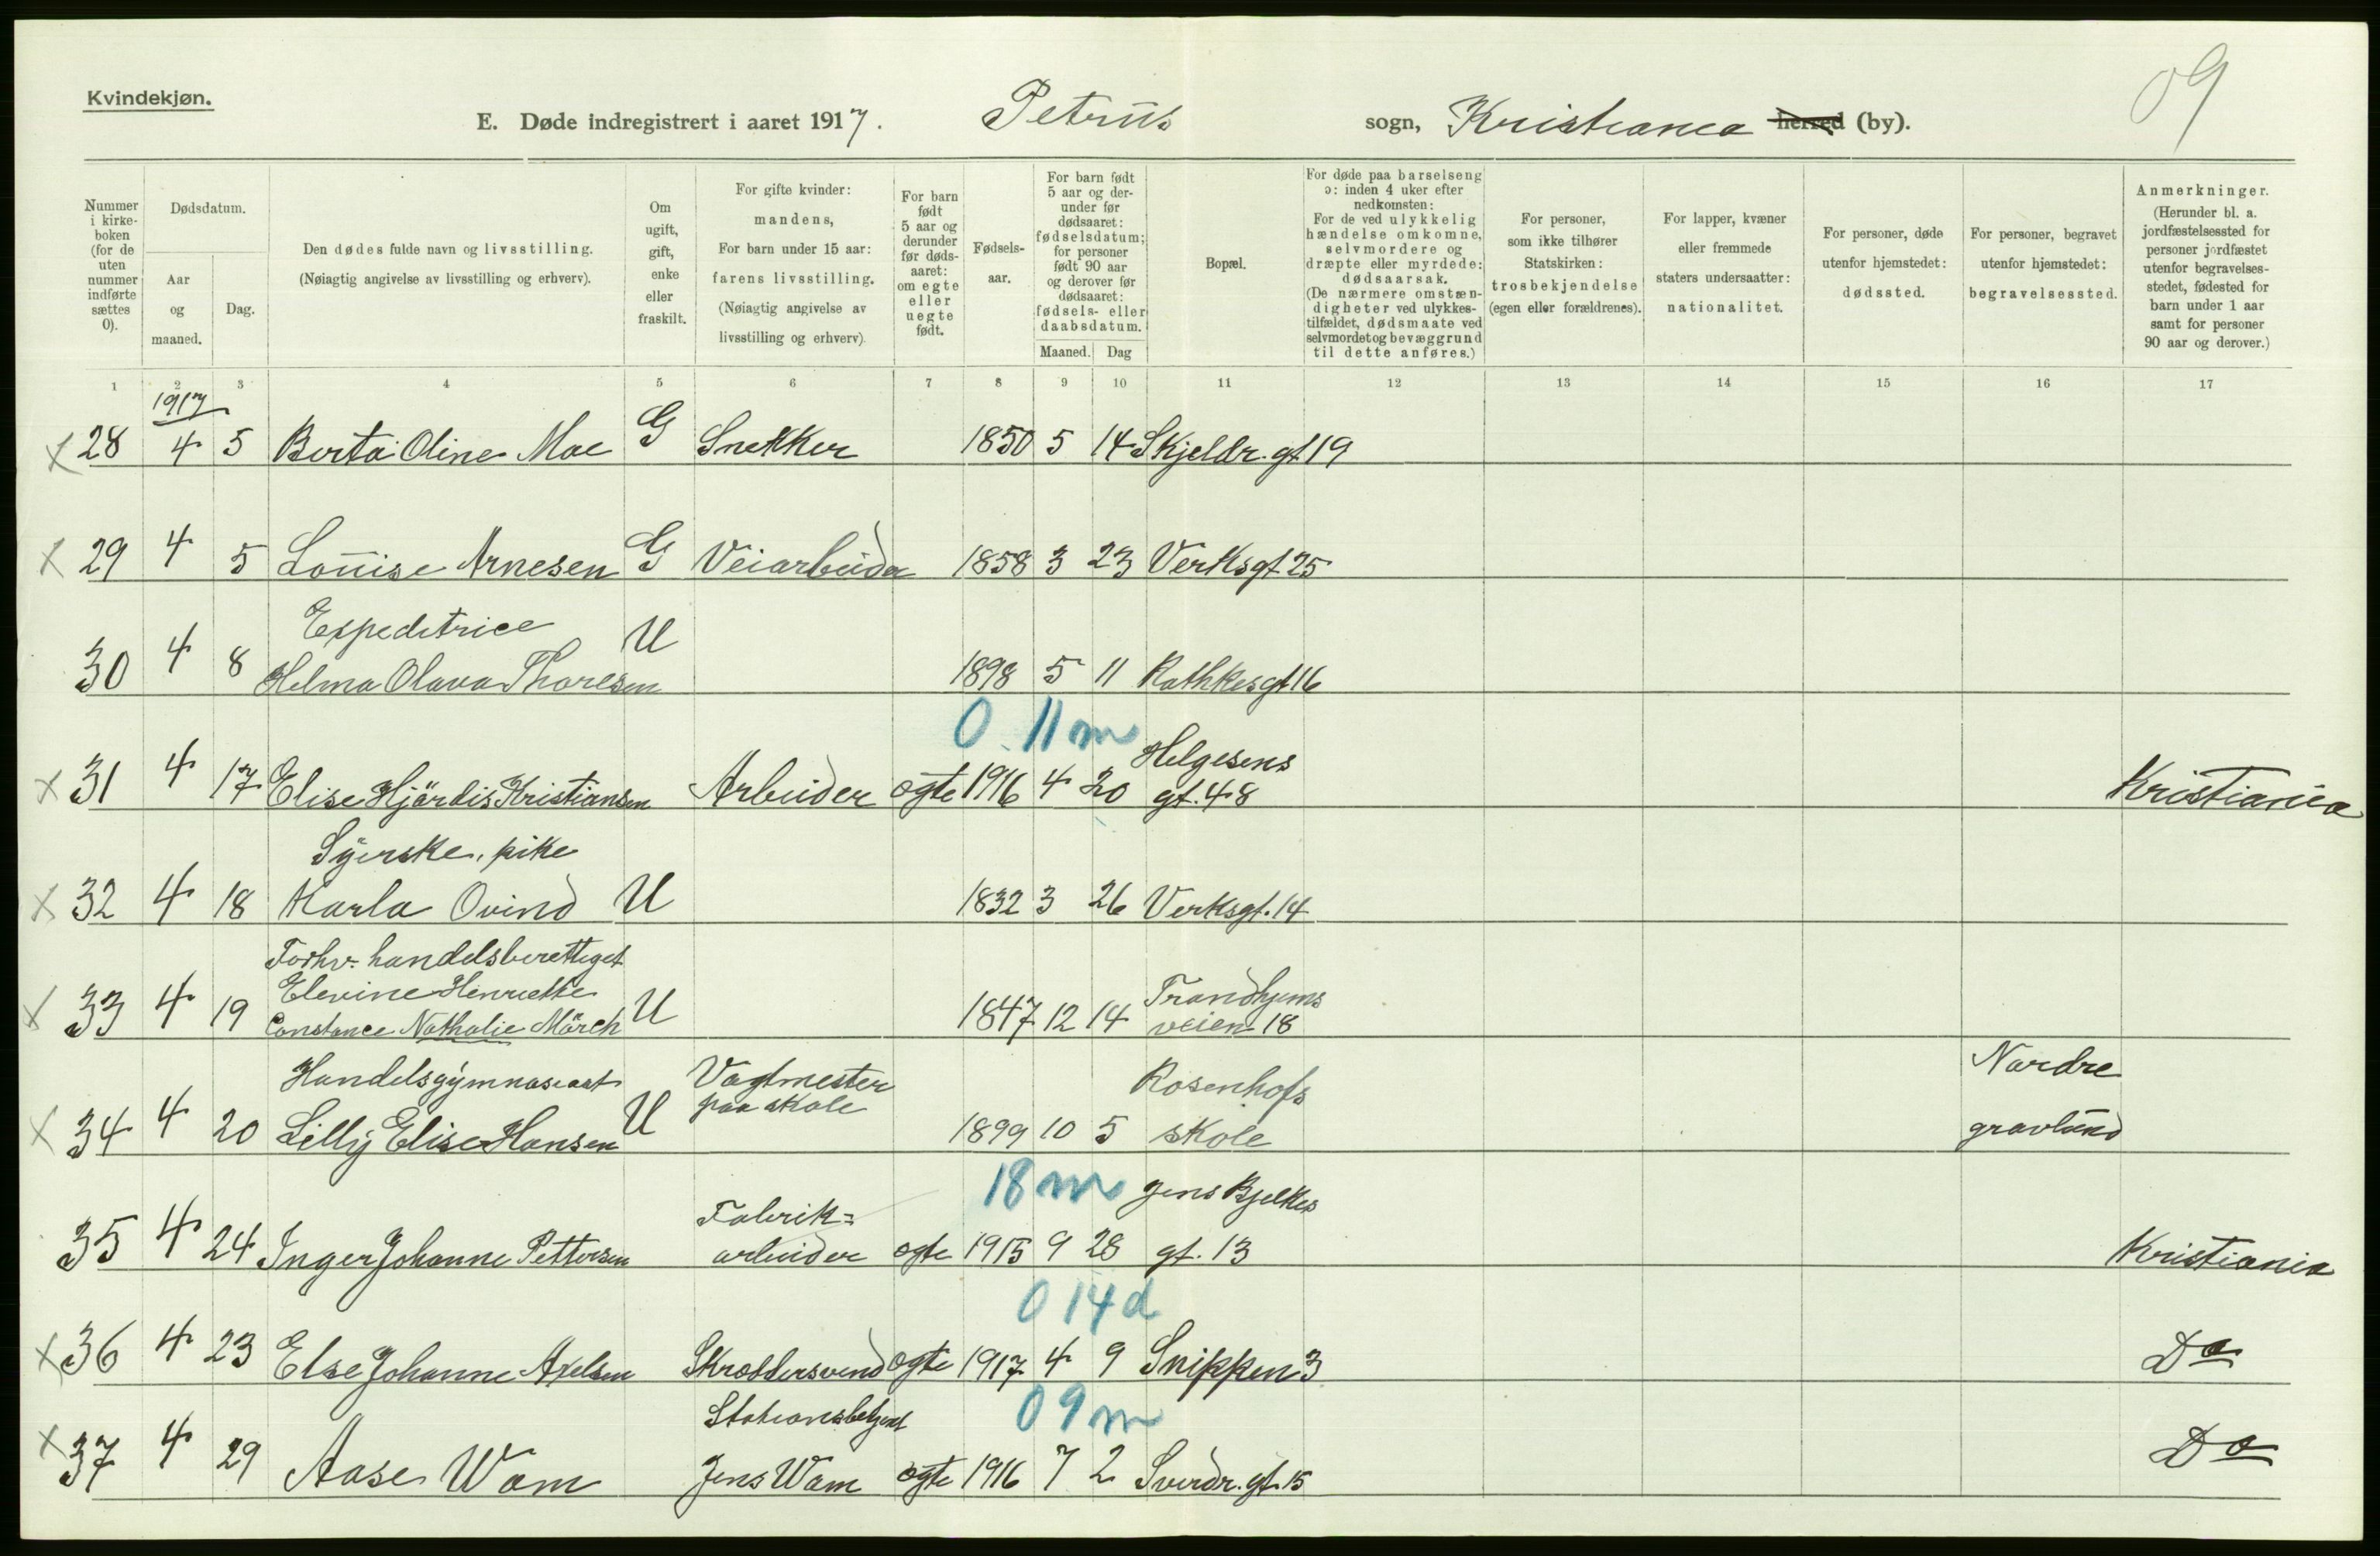 Kvindekjøn.
09
E. Døde indregistrert i aaret 1917. Petrus sogn, Kristiania herred (by).
Nummer i kirke-boken (for de uten nummer indførte sættes 0).
Dødsdatum.
Aar og maaned.
Dag.
Den dødes fulde navn og livsstilling.
(Nøiagtig angivelse av livsstilling og erhverv).
Om ugift, gift, enke eller fraskilt.
For gifte kvinder: mandens,
For barn under 15 aar: farens livsstilling.
(Nøiagtig angivelse av livsstilling og erhverv).
For barn født 5 aar og derunder før døds-aaret: om egte eller uegte født.
Fødsels-aar.
For barn født 5 aar og der-under før dødsaaret: fødselsdatum; for personer født 90 aar og derover før dødsaaret: fødsels- eller daabsdatum.
Maaned. Dag
Bopæl.
For døde paa barselseng ɔ: inden 4 uker efter nedkomsten:
For de ved ulykkelig hændelse omkomne, selvmordere og dræpte eller myrdede: dødsaarsak.
(De nærmere omstæn-digheter ved ulykkes-tilfældet, dødsmaate ved selvmordet og bevæggrund til dette anføres.)
For personer, som ikke tilhører Statskirken: trosbekjendelse (egen eller forældrenes).
For lapper, kvæner eller fremmede staters undersaatter: nationalitet.
For personer, døde utenfor hjemstedet: dødssted.
For personer, begravet utenfor hjemstedet: begravelsessted.
Anmerkninger.
(Herunder bl. a. jordfæstelsessted for personer jordfæstet utenfor begravelses-stedet, fødested for barn under 1 aar samt for personer 90 aar og derover.)
1 2 3 4 5 6 7 8 9 10 11 12 13 14 15 16 17
1917
x 28 4 5 Berta Oline Moe G Snekker 1850 5 14 Skjeldr. gt 19
x 29 4 5 Louise Arnesen G Veiarbeider 1858 3 23 Verksgt 25
Expeditrice
30 4 8 Helma Olava Thoresen U 1898 5 11 Rathkesgt 16
0. 11 m
Helgesens
x 31 4 17 Elise Hjördis Kristiansen Arbeider egte 1916 4 20 gt. 48 Kristiania
Syerske, pike
x 32 4 18 Karla Ovind U 1832 3 26 Verksgt. 14
Forhv. handelsberettiget
Elevine Henriette Trondhjems
x 33 4 19 Constance Nathalie Mörch U 1847 12 14 veien 18
Handelsgymnasiast Vagtmester Rosenhofs Nordre
paa skole
x 34 4 20 Lilly Elise Hansen U 1899 10 5 skole gravlund
18 m Jens Bjelkes
Fabrik=
35 4 24 Inger Johanne Pettersen arbeider egte 1915 9 28 gt. 13 Kristiania
0 14 d
x 36 4 23 Else Johanne Axelsen Skræddersvend egte 1917 4 9 Snippen 3 Do
Stationsbetjent 0 9 m
x 37 4 29 Aase Wam Jens Wam egte 1916 7 2 Sverdr. gt. 15 Do